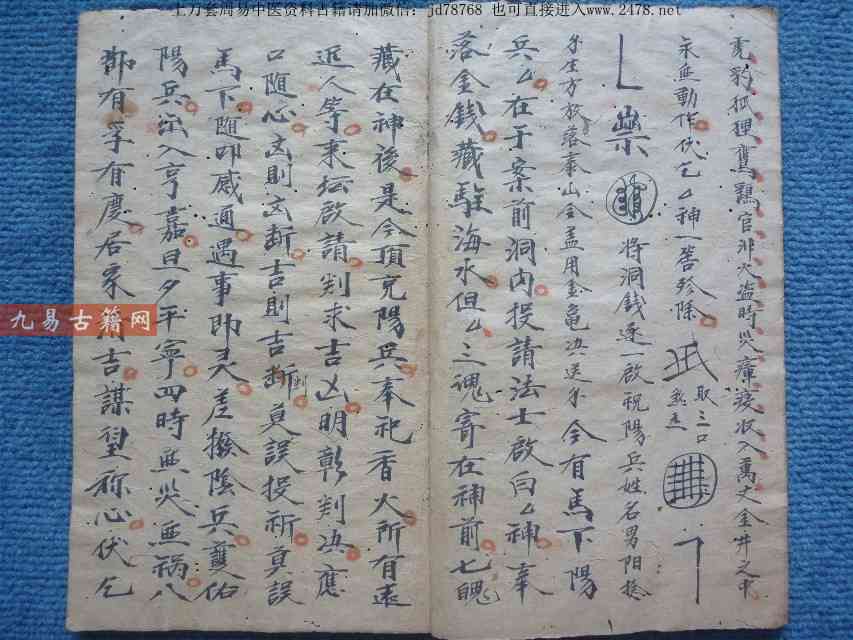 上万套周易中医资料古籍请加微信：jd78768 也可直接进入www.2478.net
虎豹狐狸鷹鷂官非火盜時災瘴疫收入萬丈金井之中
永無動作伏乞厶神一筶殄除
取三口
將洞錢逐一啟祝陽兵姓名男阳
今有馬下陽
兵厶在于案前洞内投請法士啟白厶神奉
落金錢藏駐海水但厶三魂寄在神前七魄
藏在神後是今頂充陽兵奉祀香火所有遠
近人等來坛啟請判求吉凶明彰判决應
口随心凶則凶断吉則吉断莫誤投祈莫誤
馬下随叩感通遇事即灵差撥陰兵翼佑
陽兵出入亨嘉旦夕平寧四時無災無祸八
節有孚有慶居家 吉謀望称心伏乞
九易古籍网